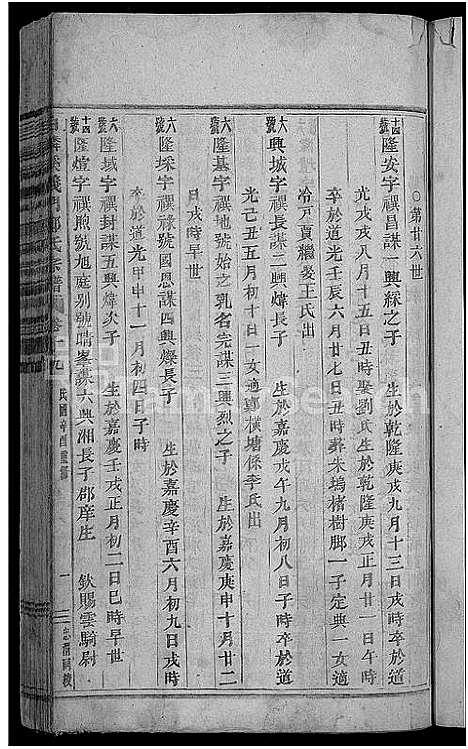 ○第廿六世
十四號隆安字禩昌謀一興綵之子　生於乾隆庚戌九月十三日戌時卒於道
光戊戌八月十五日丑時娶劉氏生於乾隆庚戌正月廿一日午時
卒於道光壬辰六月廿七日丑時葬朱塢楮樹脚一子定典一女適
冷元真繼娶王氏出
六號興城字禩長謀二興煒長子　生於嘉慶戊午九月初八日子時卒於道
光己丑五月初十日一女適鄭横塘係李氏出
六號隆基字禩地號始之乳名完謀三興烈之子　生於嘉慶庚申十月廿二
日戌時早世
六號隆埰字禩祿號國恩謀四興燦長子　生於嘉慶辛酉六月初九日戌時
卒於道光甲申十一月初四日子時
六號隆域字禩封謀五興煒次子　生於嘉慶壬戌正月初二日巳時早世
十四號隆燈字禩煦號旭庭别號晴峯謀六興湘長子郡庠生　欽賜雲騎尉
氏宗譜 卷十九 民國辛酉重修 一